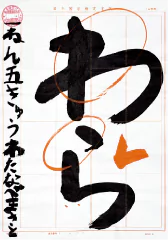 わら
ねん五きゅうわたなべまさと